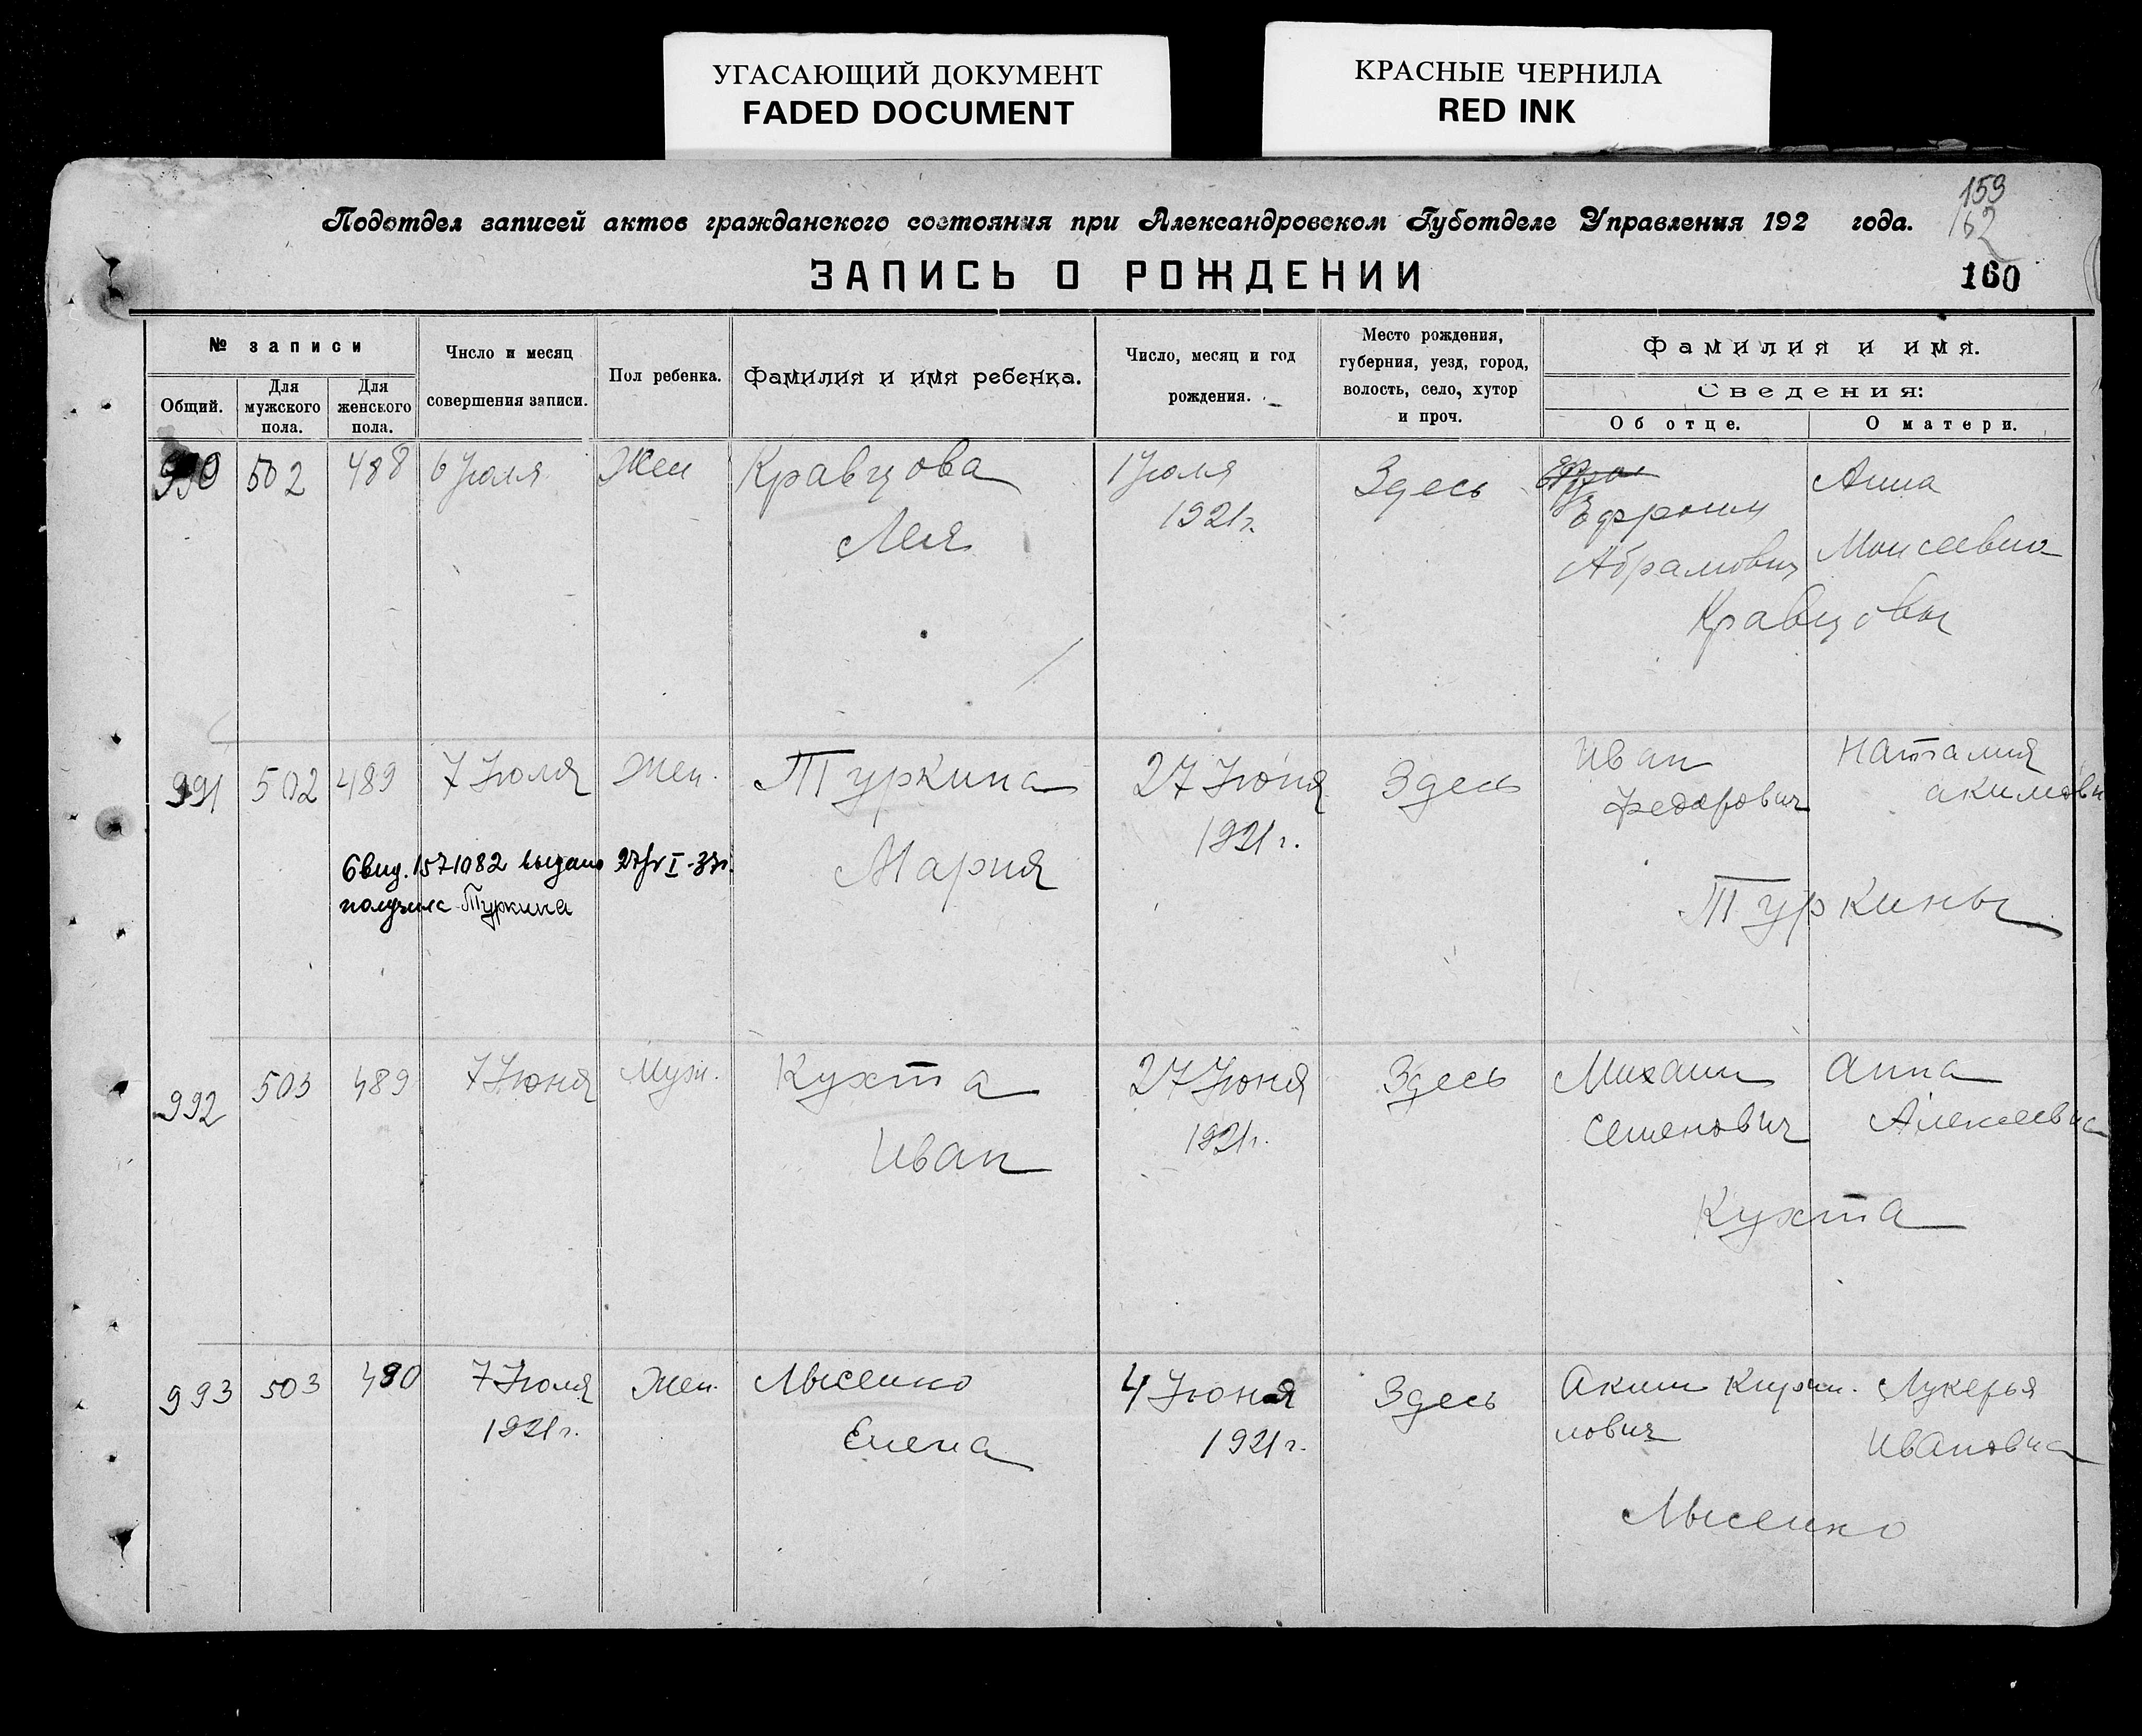 УГАСАЮЩИЙ ДОКУМЕНТ
FADED DOCUMENT
КРАСНЫЕ ЧЕРНИЛА
RED INK
159
162
Подотдел записей актов гражданского состояния при Александровском Губотделе Управления 192 года.
ЗАПИСЬ О РОЖДЕНИИ
160
№ записи
Общий.
Для мужского пола.
Для женского пола.
Число и месяц
совершения записи.
Пол ребенка.
Фамилия и имя ребенка.
Число, месяц и год
рождения.
Место рождения,
губерния, уезд, город,
волость, село, хутор
и проч.
Фамилия и имя.
Сведения:
Об отце.
О матери.
990 502 488 6 Июля Жен Кравцова 1 Июля Здесь Анна
Лея 1921 г. Эфроим
Абрамович Моисеевна
Кравцовы
991 502 489 7 Июля Жен. Туркина 27 Июня Здесь Иван Наталия
Мария 1921 г. Федорович Акимовн
Свид. 1571082 выдано 27/I-37г.
получила Туркина
Туркины
992 503 489 7 Июня Муж. Кухта 27 Июня Здесь Михаил Анна
Иван 1921 г. Семенович Алексеевна
Кухта
993 503 490 7 Июля Жен. Лысенко 4 Июня Здесь Аким Кирил. Лукерья
1921 г. Елена 1921 г. лович Ивановна
Лысенко